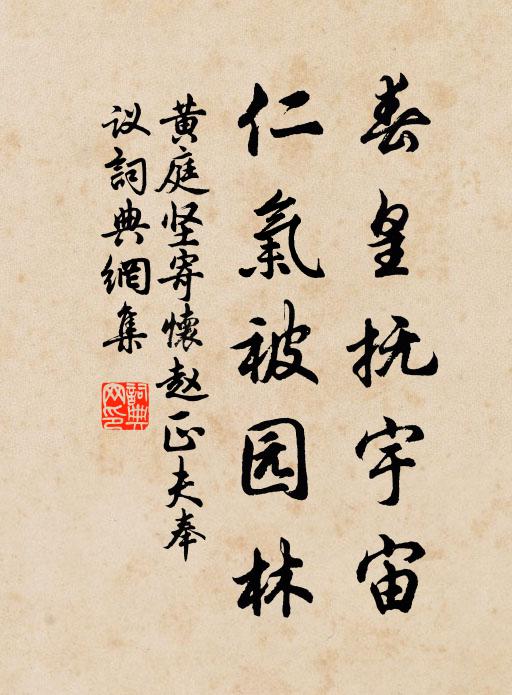 春皇抚宇宙
仁氣被园林
黄庭坚寄懷赵正夫奉
议詞典網集
詞典
网印